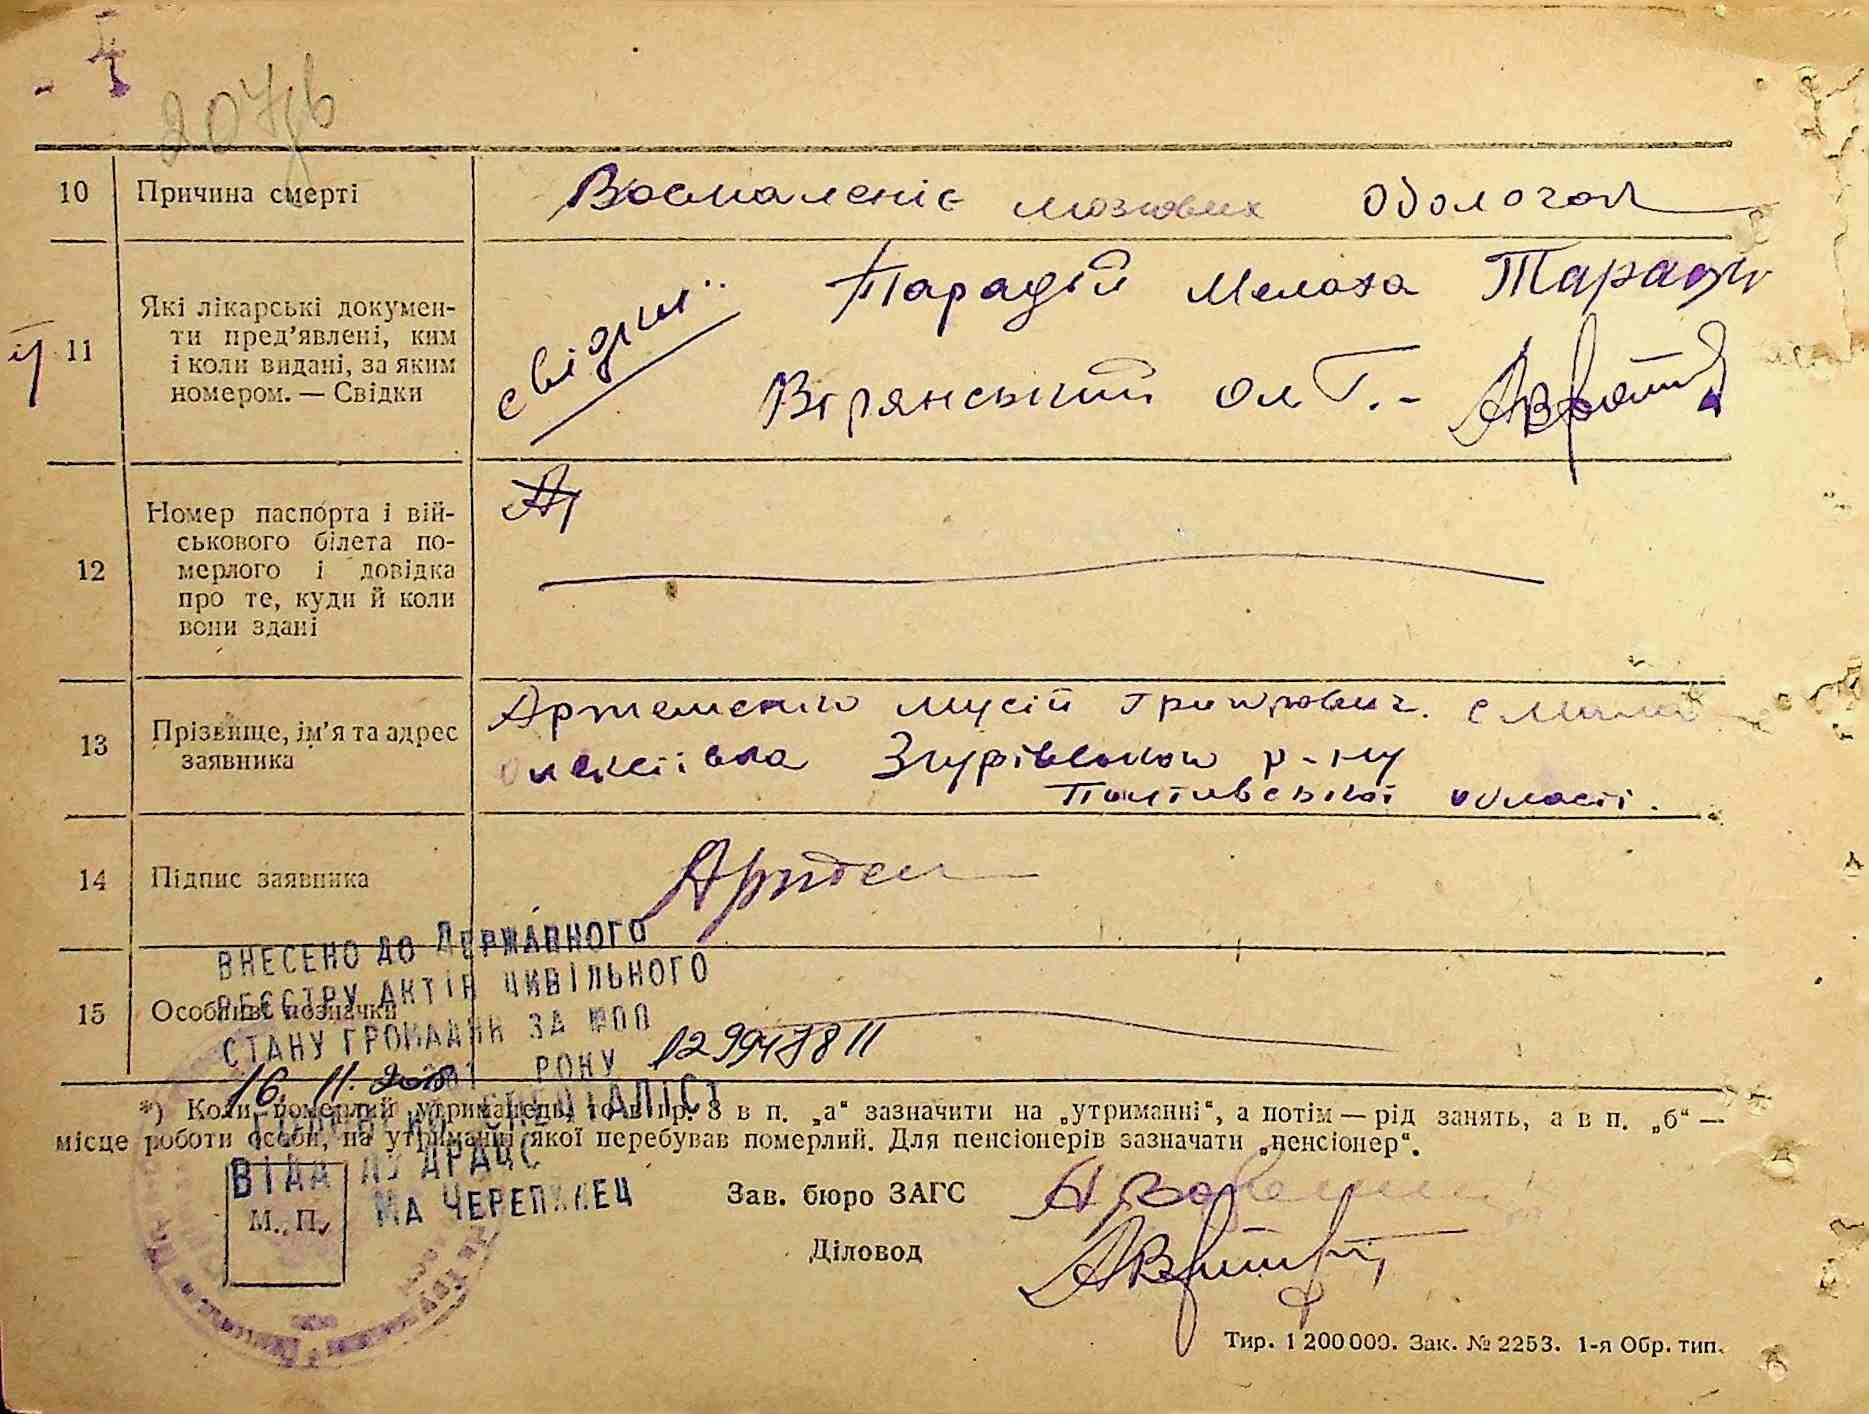 207зв
10 Причина смерті Воспаленіє мозкових оболочок
11 Які лікарські докумен-
ти пред'явлені, ким
і коли видані, за яким
номером. — Свідки
свідки Парадій Мелоха Тарадій
Вірянський
12 Номер паспорта і вій-
ськового білета по-
мерлого і довідка
про те, куди й коли
вони здані
13 Прізвище, ім'я та адрес
заявника
Артеменко Мусій с Мало
олексіївка Згурівського р-ну
Полтавської області.
14 Підпис заявника Артем
15 Особливі позначки
ВНЕСЕНО ДО ДЕРЖАВНОГО
РЕЄСТРУ АКТІВ ЦИВІЛЬНОГО
СТАНУ ГРОМАДЯН ЗА №00
129947811
16.11. РОКУ
СПЕЦІАЛІСТ
ВІДДІЛУ ДРАЦС
*) Коли померлий утриманець, то в гр. 8 в п. „а“ зазначити на „утриманні“, а потім — рід занять, а в п. „б“ —
місце роботи особи, на утриманні якої перебував померлий. Для пенсіонерів зазначати „пенсіонер“.
М. П.
Зав. бюро ЗАГС
Діловод
Тир. 1 200 000. Зак. № 2253. 1-я Обр. тип.